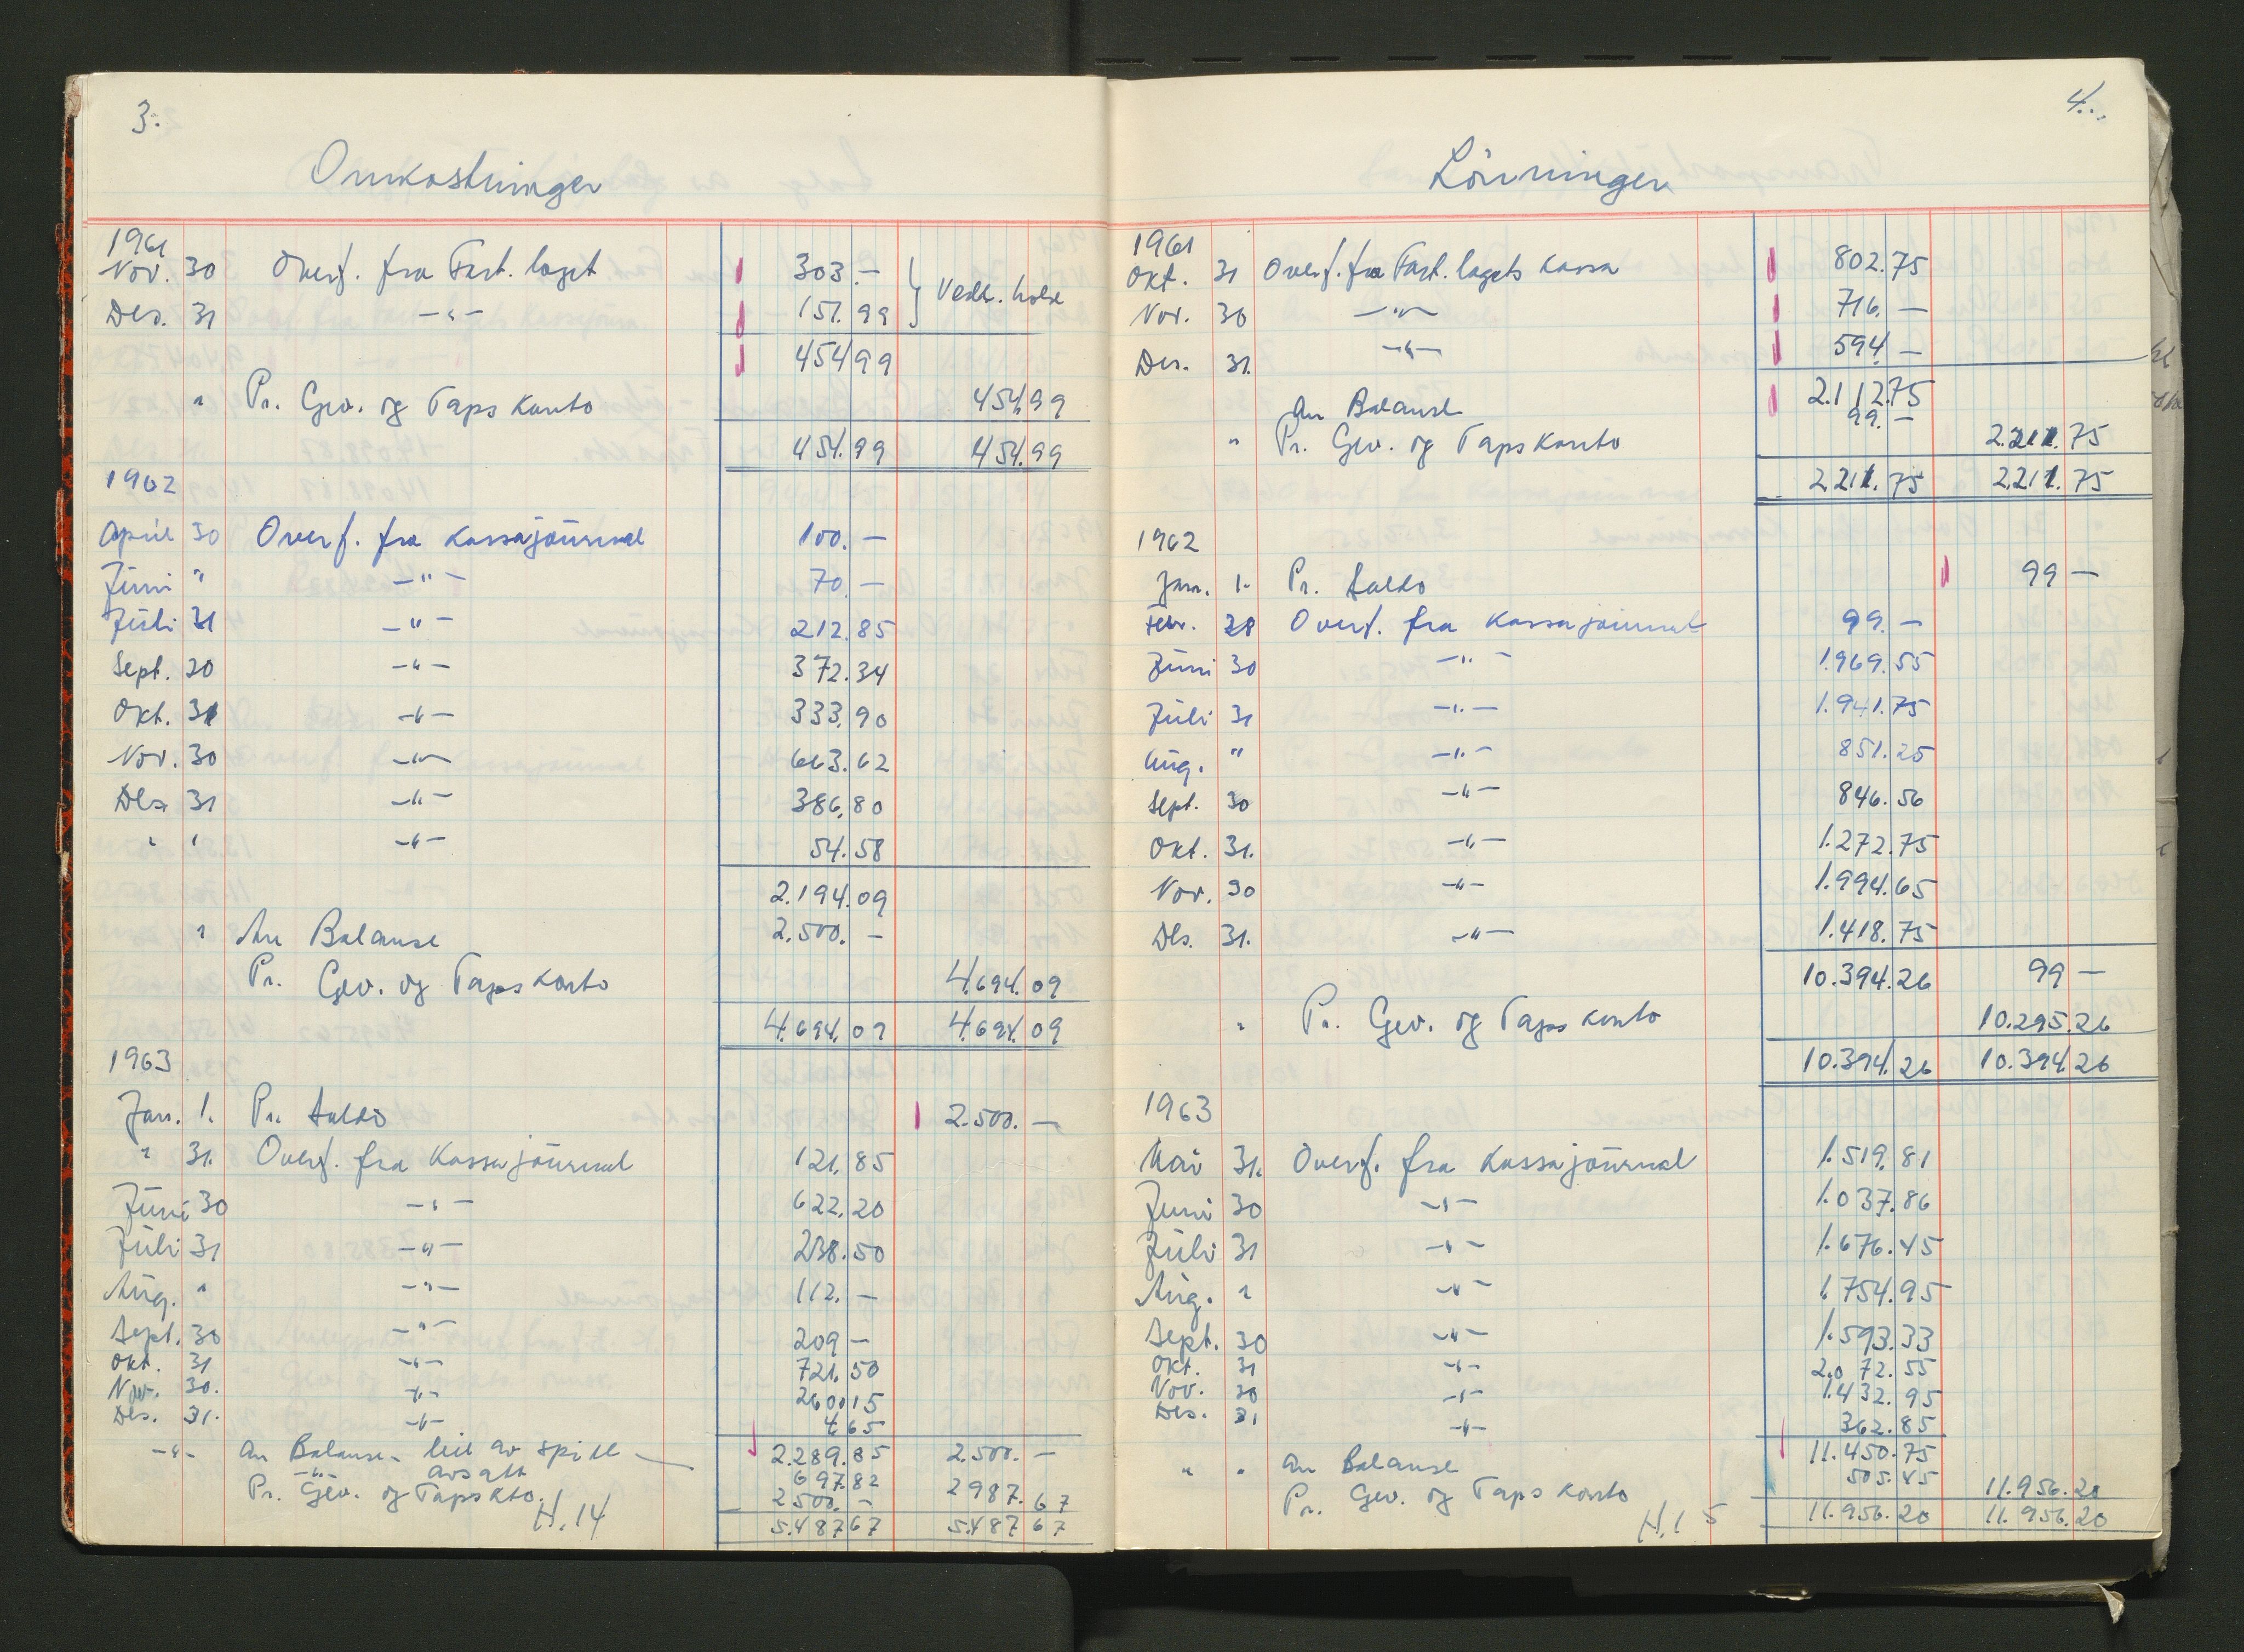 3.
Omkostninger
1961
Nov. 30 Overf. fra Fart. laget 303.- } Vedl. hold
Des. 31 -"- 151.99
454 99
" Pr. Gev. og Taps Konto 454.99
454.99 454.99
1962
April 30 Overf. fra Kassajournal 100.-
Juni " -"- 70.-
Juli 31 -"- 212.85
Sept. 30 -"- 372.34
Okt. 31 -"- 333.90
Nov. 30 -"- 663.62
Des 31 -"- 386.80
" " -"- 54.58
2.194.09
" An Balanse 2.500.-
Pr. Gev. og Taps Konto 4.694.09
4.694.09 4.694.09
1963
Jan. 1. Pr. Saldo 2.500.-
" 31. Overf. fra Kassajournal 121.85
Juni 30 -"- 622.20
Juli 31 -"- 238.50
Aug. " -"- 112.-
Sept. 30 -"- 209 -
Okt. 31 -"- 721.50
Nov. 30. -"- 260.15
Des. 31. -"- 4.65
-"- An Balanse - leie av spill 2.289.85 2.500.-
-"- avsatt 697.82
Pr. Gev. og Taps Kto. 2500.- 2987.67
H.14 5.487 67 5.487 67
4.
Lönninger
1961
Okt. 31 Overf. fra Fart. lagets Kassa 802.75
Nov. 30 -"- 716.-
Des. 31. -"- 594 -
2.112.75
An Balanse 99.-
" Pr. Gev. og Taps Konto 2.211.75
2.211.75 2.211.75
1962
Jan. 1. Pr. Saldo 99 -
Febr. 28 Overf. fra Kassajournal 99.-
Juni 30 -"- 1.969.55
Juli 31 -"- 1.941.75
Aug. " -"- 851.25
Sept. 30 -"- 846.56
Okt. 31. -"- 1.272.75
Nov. 30 -"- 1.994.65
Des. 31. -"- 1.418.75
10.394.26 99 -
" Pr. Gev. og Taps konto 10.295.26
10.394.26 10.394.26
1963
Mai 31. Overf. fra Kassajournal 1.519.81
Juni 30 -"- 1.037.86
Juli 31 -"- 1.676.45
Aug. " -"- 1.754.95
Sept. 30 -"- 1.593.33
Okt. 31 -"- 2.072.55
Nov. 30 -"- 1.432.95
Des. 31 -"- 362.85
11.450.75
" " An Balanse 505.45
Pr. Gev. og Taps Konto 11.956.20
H.15 11.956.20 11.956.20